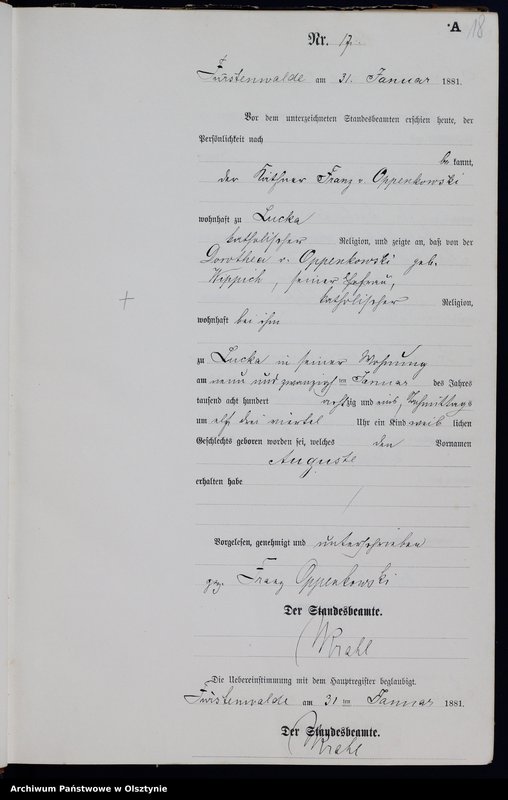 A 18
Nr. 17.
Fürstenwalde am 31. Januar 1881.
Vor dem unterzeichneten Standesbeamten erschien heute, der
Persönlichkeit nach
be kannt,
der Käthner Franz v. Oppenkowski
wohnhaft zu Lucka
katholischer Religion, und zeigte an, daß von der
Dorothea v. Oppenkowski geb.
Wippich, seiner Ehefrau,
katholischer Religion,
wohnhaft bei ihm
zu Lucka in seiner Wohnung
am neun und zwanzigsten Januar des Jahres
tausend acht hundert achtzig und eins, Nachmittags
um elf drei viertel Uhr ein Kind weib lichen
Geschlechts geboren worden sei, welches den Vornamen
Auguste
erhalten habe
Vorgelesen, genehmigt und unterschrieben
gez. Franz Oppenkowski
Der Standesbeamte.
Krahl
Die Uebereinstimmung mit dem Hauptregister beglaubigt.
Fürstenwalde am 31 ten Januar 1881.
Der Standesbeamte.
Krahl
Archiwum Państwowe w Olsztynie